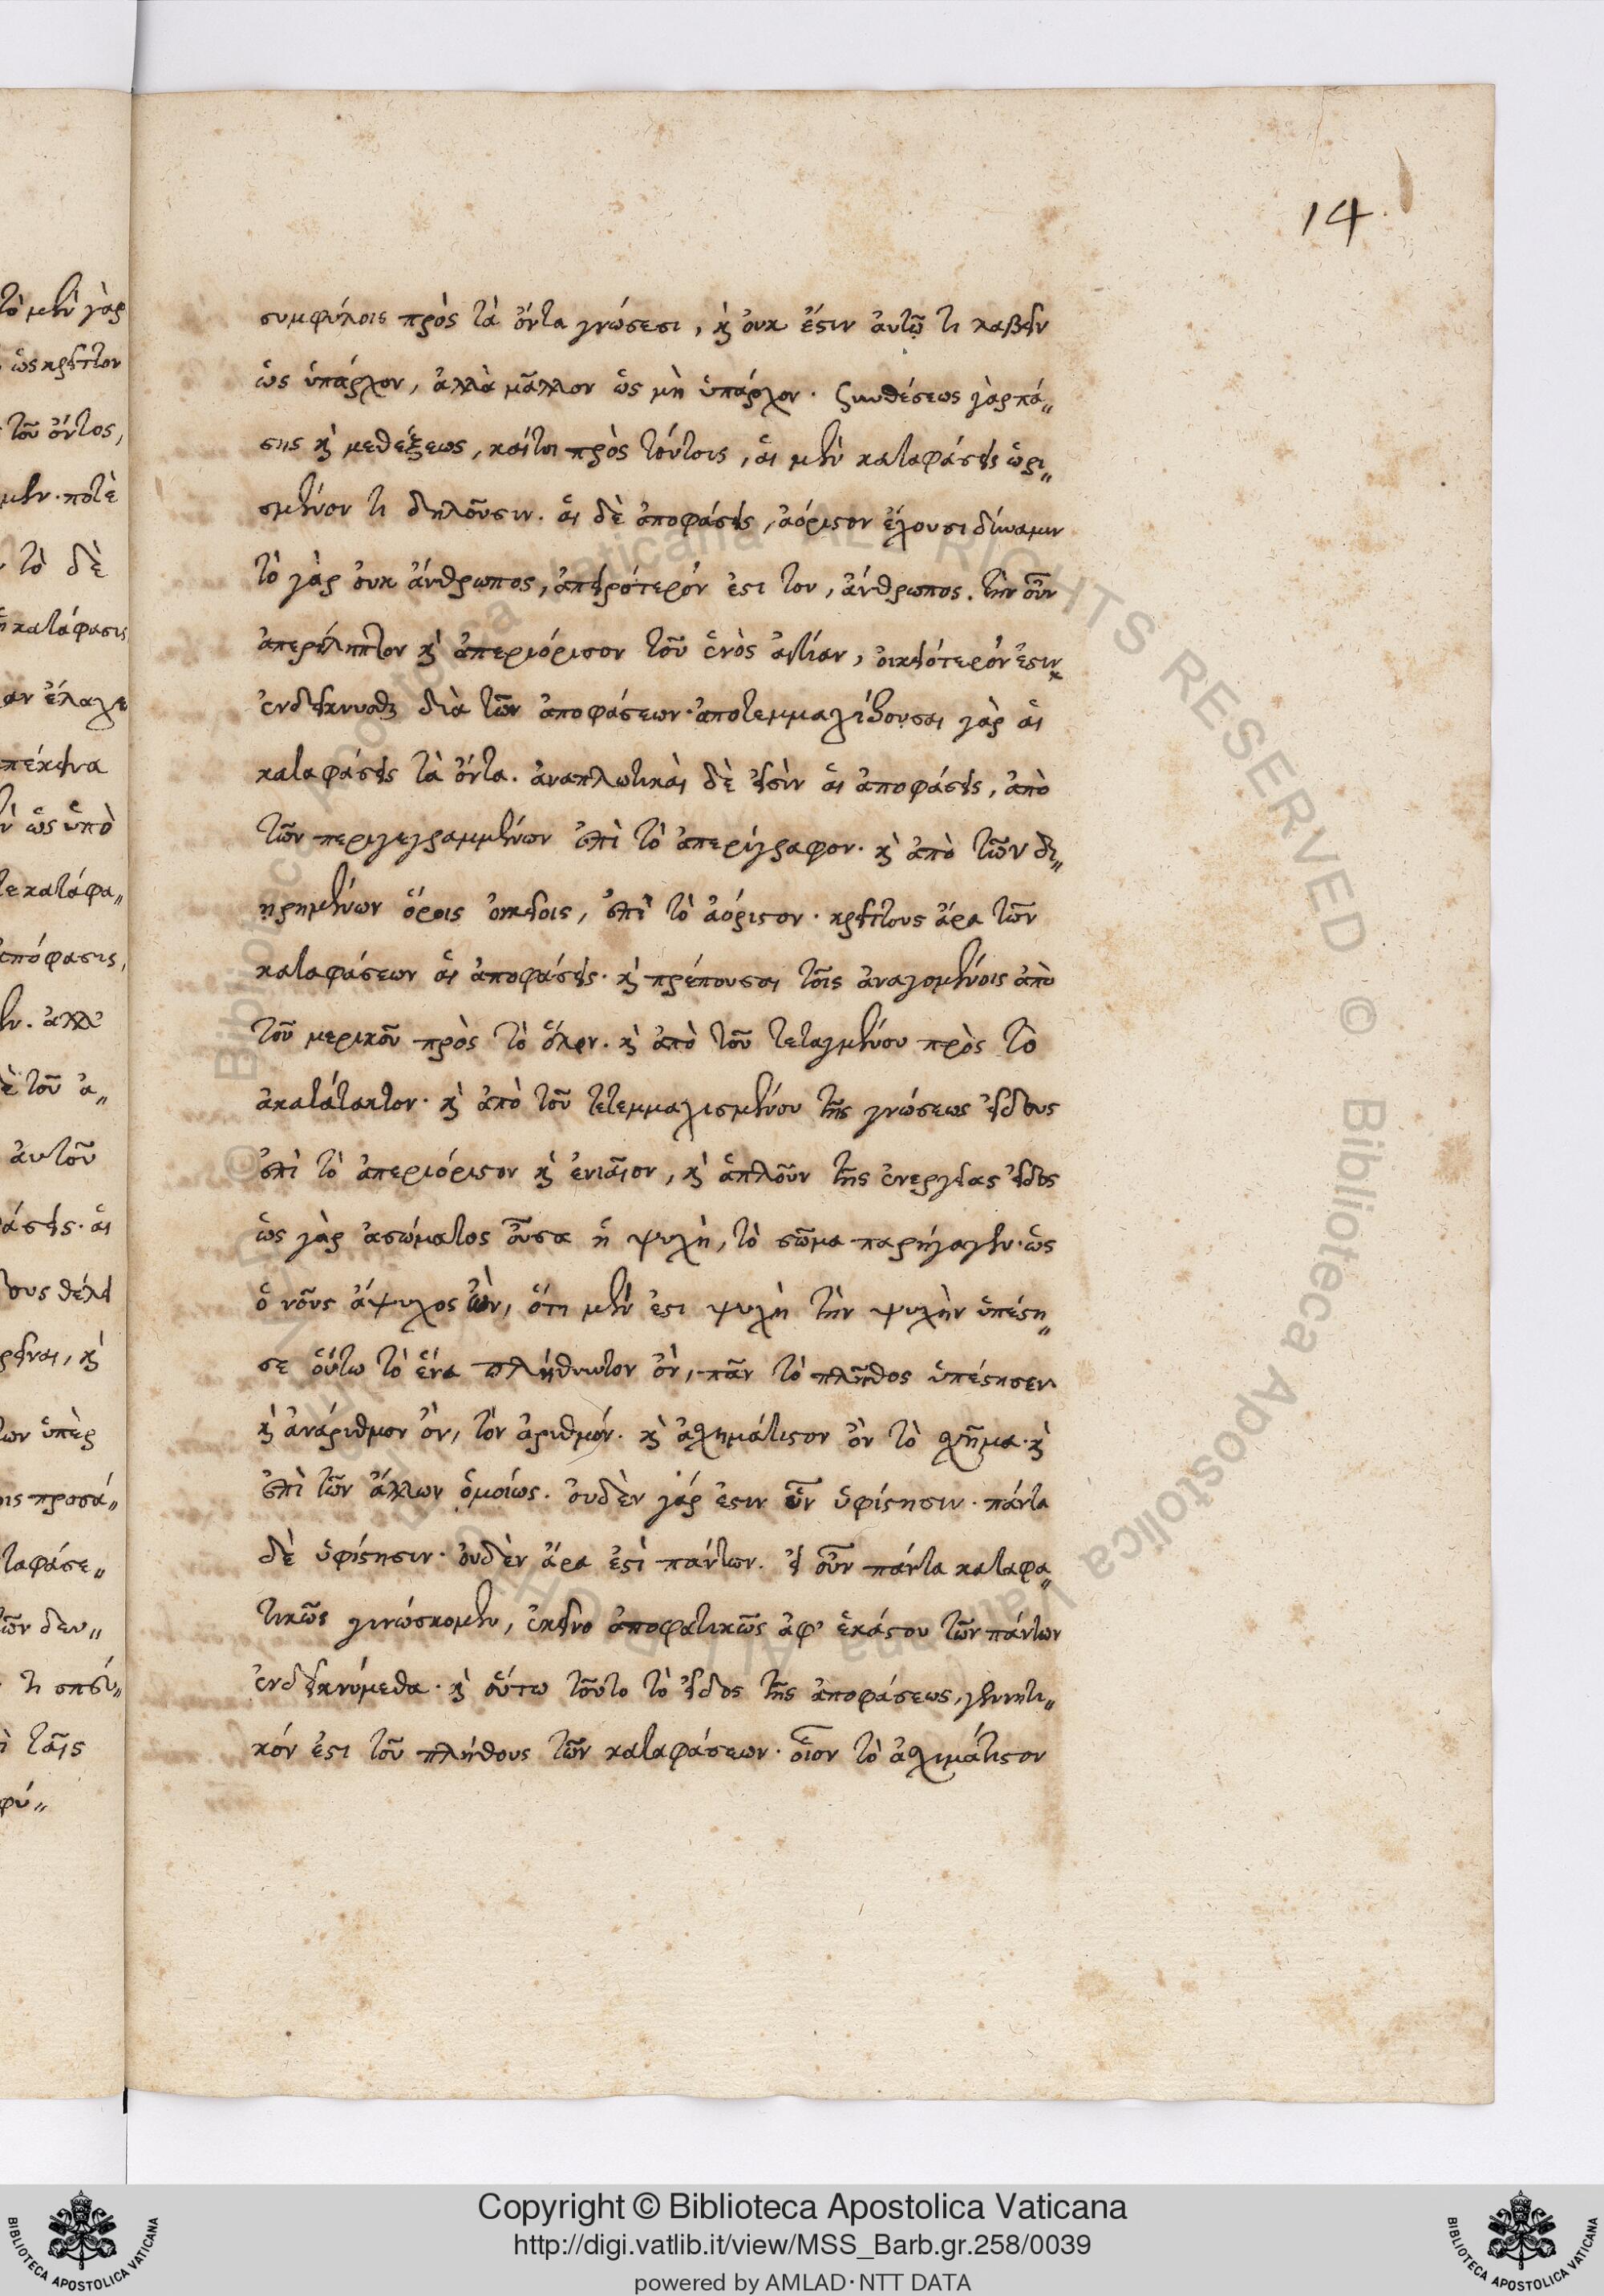 14.
συμφύλοις πρὸς τὰ ὄντα γνώσεσι, κὶ ὀυκ ἔστιν ἀυτῷ τι λαβεῖν
ὡς ὑπάρχον, ἀλλὰ μᾶλλον ὡς μὴ ὑπάρχον. Συνθέσεως γὰρ πά〃
σης κὶ μεθέξεως, καίτοι πρὸς τούτοις, ἁι μὲν καταφάσεις ὡρι〃
σμένον τι δηλοῦσιν. ἁι δὲ ἀποφάσεις, ἀόριστον ἔχουσι δύναμιν
τὸ γὰρ ὀυκ ἄνθρωπος, ἀπειρότερόν ἐστι του, ἄνθρωπος. τὴν οὖν
ἀπερίληπτον κὶ ἀπεριόριστον τοῦ ἑνὸς ἀιτίαν, ὀικειότερόν ἐστιν
ἐνδείκνυσθαι διὰ τῶν ἀποφάσεων. ἀποτεμμαχίζουσαι γὰρ ἁι
καταφάσεις τὰ ὄντα. ἀναπλωτικὰι δὲ εἰσὶν ἁι ἀποφάσεις, ἀπὸ
τῶν περιγεγραμμένων ἐπὶ τὸ ἀπερίγραφον. κὶ ἀπὸ τῶν δι〃
ηρημένων ὅροις ὀικείοις, ἐπὶ τὸ ἀόριστον. κρείττους ἄρα τῶν
καταφάσεων ἁι ἀποφάσεις. κὶ πρέπουσαι τοῖς ἀναγομένοις ἀπὸ
τοῦ μερικοῦ πρὸς τὸ ὅλον. κὶ ἀπὸ τοῦ τεταγμένου πρὸς τὸ
ἀκατάτακτον. κὶ ἀπὸ τοῦ τετεμμαχισμένου τῆς γνώσεως εἴδους
ἐπὶ τὸ ἀπεριόριστον κὶ ἑνιαῖον, κὶ ἁπλοῦν τῆς ἐνεργείας εἶδος
ὡς γὰρ ἀσώματος οὖσα ἡ ψυχὴ, τὸ σῶμα παρήγαγεν. ὡς
ὁ νοῦς ἄψυχος ὢν, ὅτι μὲν ἐστι ψυχὴ τὴν ψυχὴν ὑπέστη〃
σε ὅυτω τὸ ἕνα πλήθυντον ὂν, πᾶν τὸ πλῆθος ὑπέστησεν
κὶ ἀνάριθμον ὂν, τὸν ἀριθμόν. κὶ ἀσχημάτιστον ὂν τὸ σχῆμα. κὶ
ἐπὶ τῶν ἄλλων ὁμοίως. ὀυδὲν γάρ ἐστιν ὧν ὑφίστησιν. πάντα
δὲ ὑφίστησιν. ὀυδὲν ἄρα ἐστὶ πάντων. εἰ οὖν πάντα καταφα〃
τικῶς γινώσκομεν, ἐκεῖνο ἀποφατικῶς ἀφ' ἑκάστου τῶν πάντων
ἐνδεικνύμεθα. κὶ ὅυτω τοῦτο τὸ εἶδος τῆς ἀποφάσεως, γεννητι〃
κόν ἐστι τοῦ πλήθους τῶν καταφάσεων. οἷον τὸ ἀσχημάτιστον
Copyright © Biblioteca Apostolica Vaticana
http://digi.vatlib.it/view/MSS_Barb.gr.258/0039
powered by AMLAD·NTT DATA